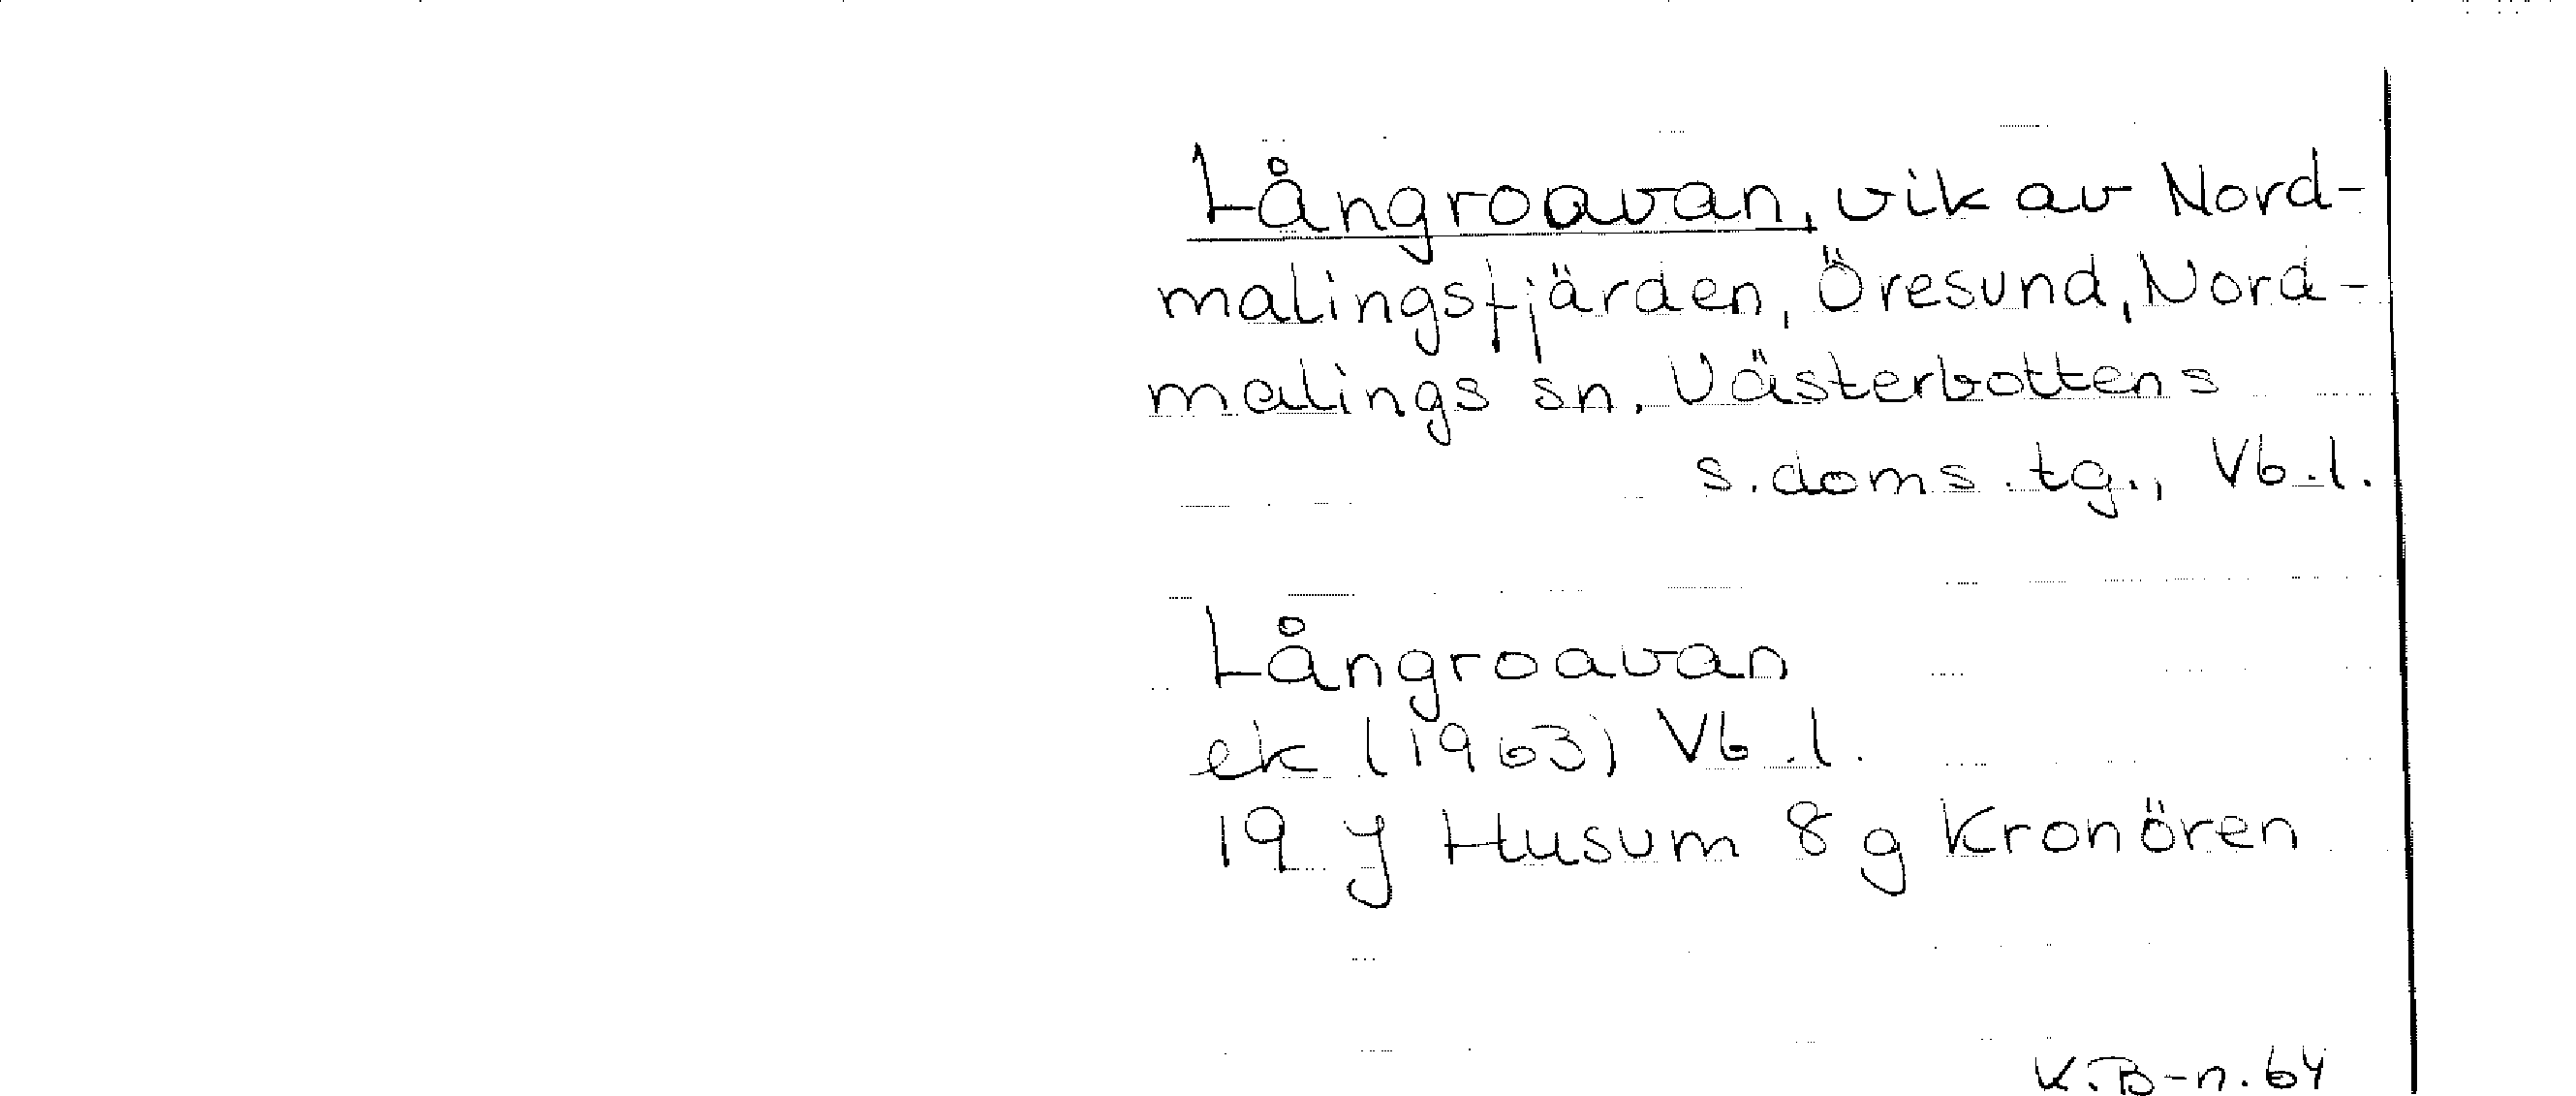 Långroavan, vik av Nord-
malingsfjärden, Öresund, Nord-
malings sn, Västerbottens
s. doms. tg., Vb. l.
Långroavan
ek (1963) Vb. l.
19 J Husum 8 g Kronören
K. B-n. 64